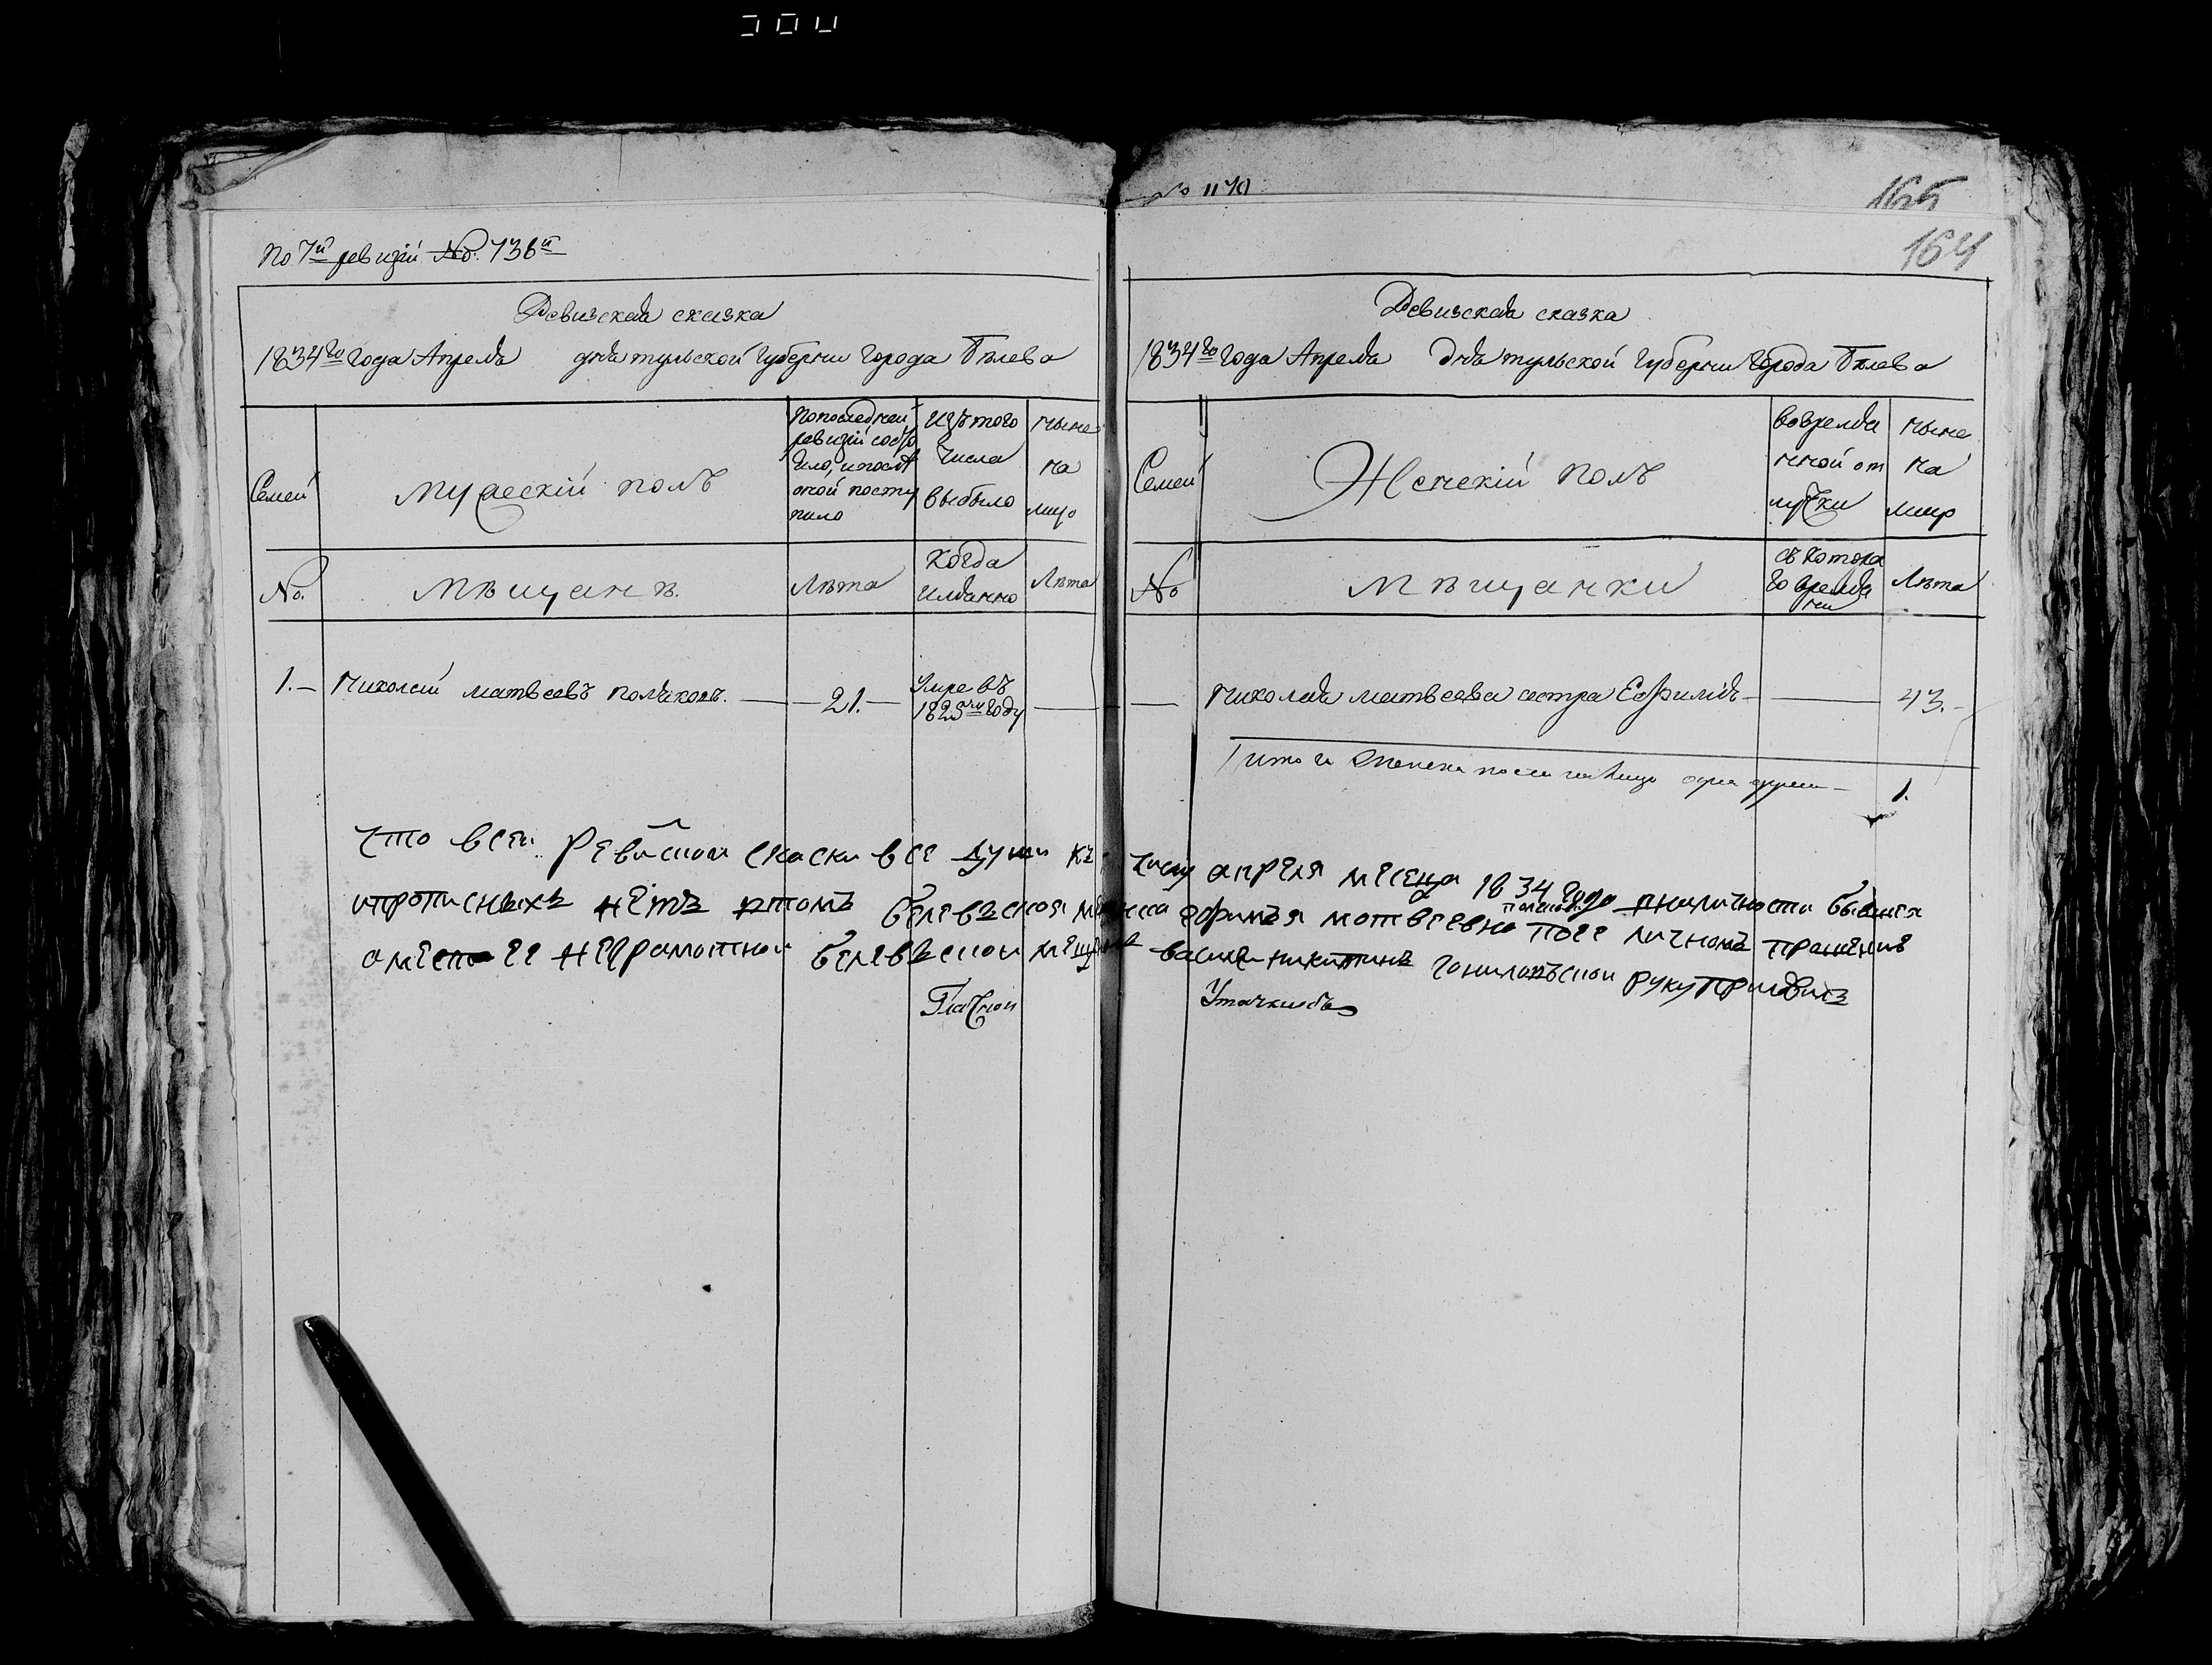 № 1170
165
164
По 7й ревизіи №. 736й
Ревизская сказка
1834го года Апреля дня тульской губерніи города Бѣлева
Семей
Мужескій полъ
По последней ревизіи состо
яло, и после
оной посту
пило
Изъ того
числа
выбыло
ныне
на
лицо
№.
Мѣщанѣ.
Лѣта
Когда
имянно
Лѣта
1. Николай матвеевъ поляковъ. 21. Умре въ
1825м году
Ревизская сказка
1834го года Апреля дня тульской губерніи города Бѣлева
Семей
Женскій полъ
во времѧ
нной от
лучки
ныне
на
лицо
№
Мѣщанки
съ котора
го времѧ
ни
Лѣта
Николая матвеева сестра Ефимія 43.
Итого женска пола на лицо одна душа 1.
Что в сеи ревиской скаски все души къ числу апреля месеца 1834 года вналичности бывшея
ипрописныхъ нетъ втомъ белевъская мещанка ефимья мотвеевна по ее личномъ прашению
аместо ее неграмотнои белевъской мещанинъ василеи никитинъ руку приложилъ
Гласнои Уточкинъ